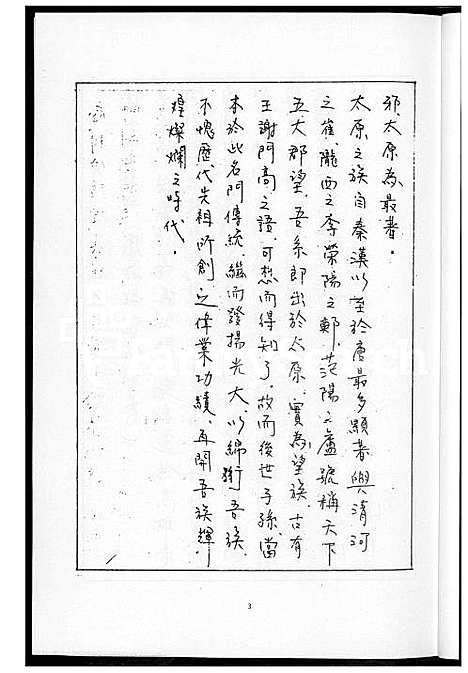 邪太原為最著。
太原之族自秦漢以至於唐最多顯著與清河
之崔、隴西之李、滎陽之鄭、范陽之盧號稱天下
五大郡望。吾系即出於太原、實為望族、古有
王謝門高之語、可想而得知了。故而後世子孫、當
本於此名門傳統、繼而發揚光大、以綿衍吾族、
不愧歷代先祖所創之偉業功績、再開吾族輝
煌燦爛之時代。
3